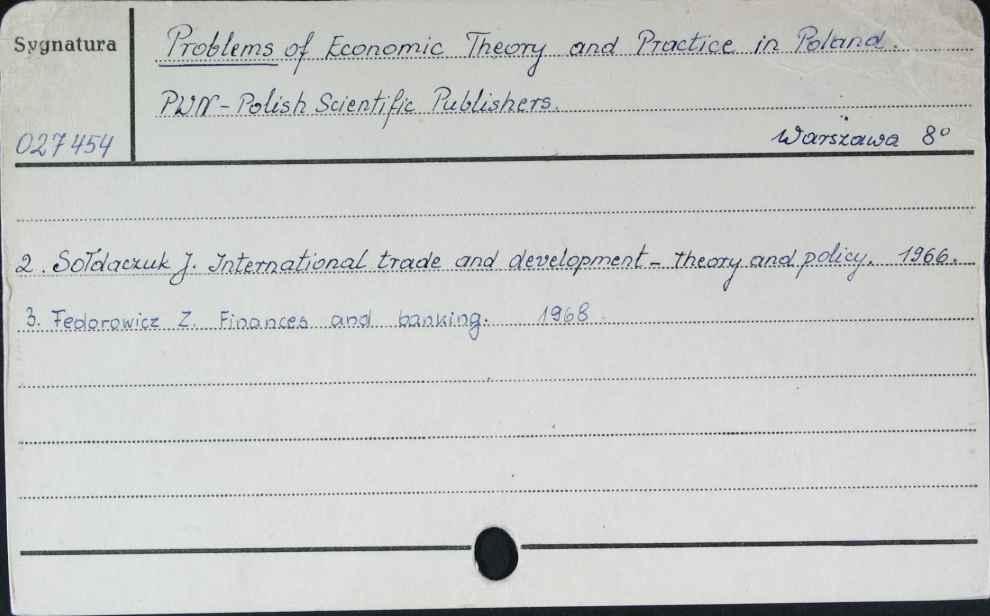 Sygnatura
Problems of Economic Theory and Practice in Poland.
PWN - Polish Scientific Publishers.
027454
Warszawa 8°
2. Sołdaczuk J. International trade and development - theory and policy. 1966.
3. Fedorowicz Z. Finances and banking. 1968.